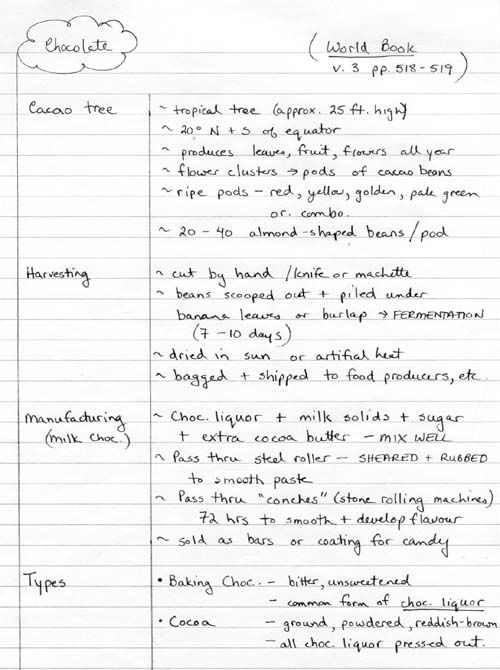 Chocolate
(World Book
v. 3 pp. 518-519)
Cacao tree ~ tropical tree (approx. 25 ft. high)
~ 20° N + S of equator
~ produces leaves, fruit, flowers all year
~ flower clusters → pods of cacao beans
~ ripe pods - red, yellow, golden, pale green
or combo.
~ 20 - 40 almond-shaped beans / pod
Harvesting ~ cut by hand / knife or machette
~ beans scooped out + piled under
banana leaves or burlap → FERMENTATION
(7 - 10 days)
~ dried in sun or artifial heat
~ bagged + shipped to food producers, etc.
Manufacturing ~ Choc. liquor + milk solids + sugar
(milk choc.) + extra cocoa butter - MIX WELL
~ Pass thru steel roller - SHEARED + RUBBED
to smooth paste
~ Pass thru "conches" (stone rolling machines)
72 hrs to smooth + develop flavour
~ sold as bars or coating for candy
Types • Baking Choc. - bitter, unsweetened
- common form of choc. liquor
• Cocoa - ground, powdered, reddish-brown
- all choc. liquor pressed out.